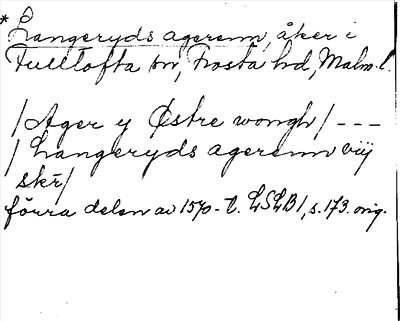 * Langeryds agerenn, åker i
Fulltofta sn, Frosta hd, Malm. l.
/Ager y Østre wongh/ ---
/Langeryds agerenn viij
skr̄/
förra delen av 1570-t. LSLB 1, s. 173. orig.